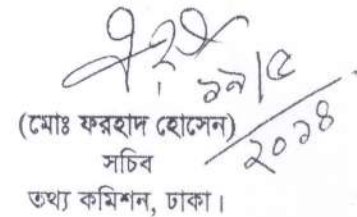 ২৯/৫
২০১৪
(মোঃ ফরহাদ হোসেন)
সচিব
তথ্য কমিশন, ঢাকা।